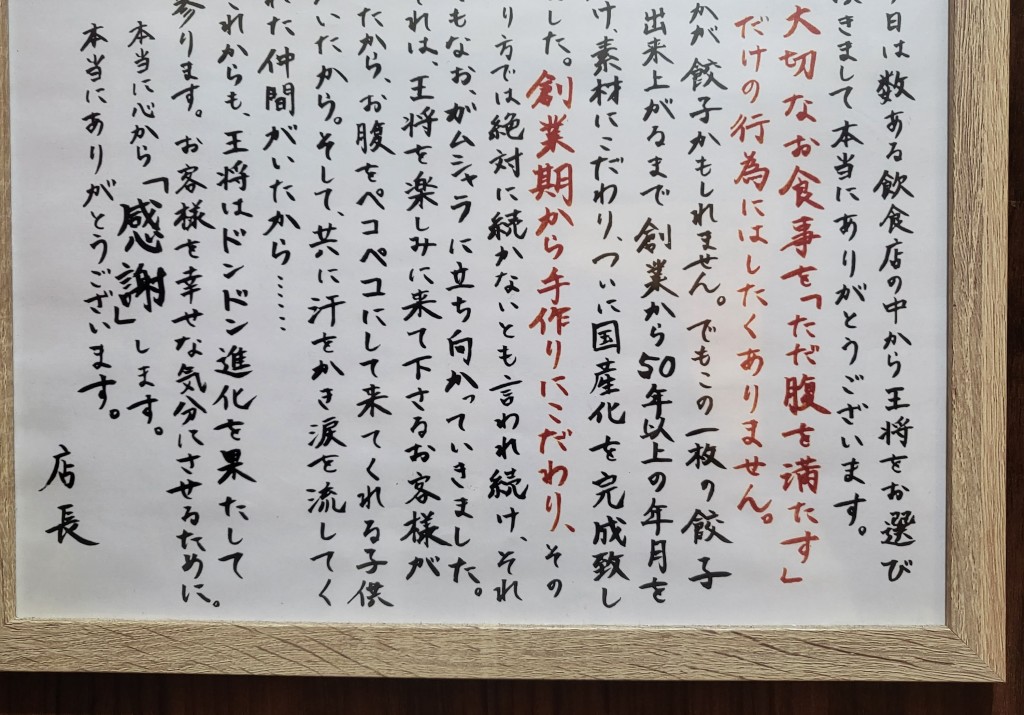 日は数ある飲食店の中から王将をお選び
頂きまして本当にありがとうございます。
大切なお食事を「ただ腹を満たす」
だけの行為にはしたくありません。
かが餃子かもしれません。でもこの一枚の餃子
出来上がるまで創業から50年以上の年月を
け、素材にこだわり、ついに国産化を完成致し
した。創業期から手作りにこだわり、その
り方では絶対に続かないとも言われ続け、それ
もなお、がムシャラに立ち向かっていきました。
れは、王将を楽しみに来て下さるお客様が
たから、お腹をペコペコにして来てくれる子供
いたから。そして、共に汗をかき涙を流してく
れた仲間がいたから……
れからも、王将はドンドン進化を果たして
参ります。お客様を幸せな気分にさせるために。
本当に心から「感謝」します。
本当にありがとうございます。
店長